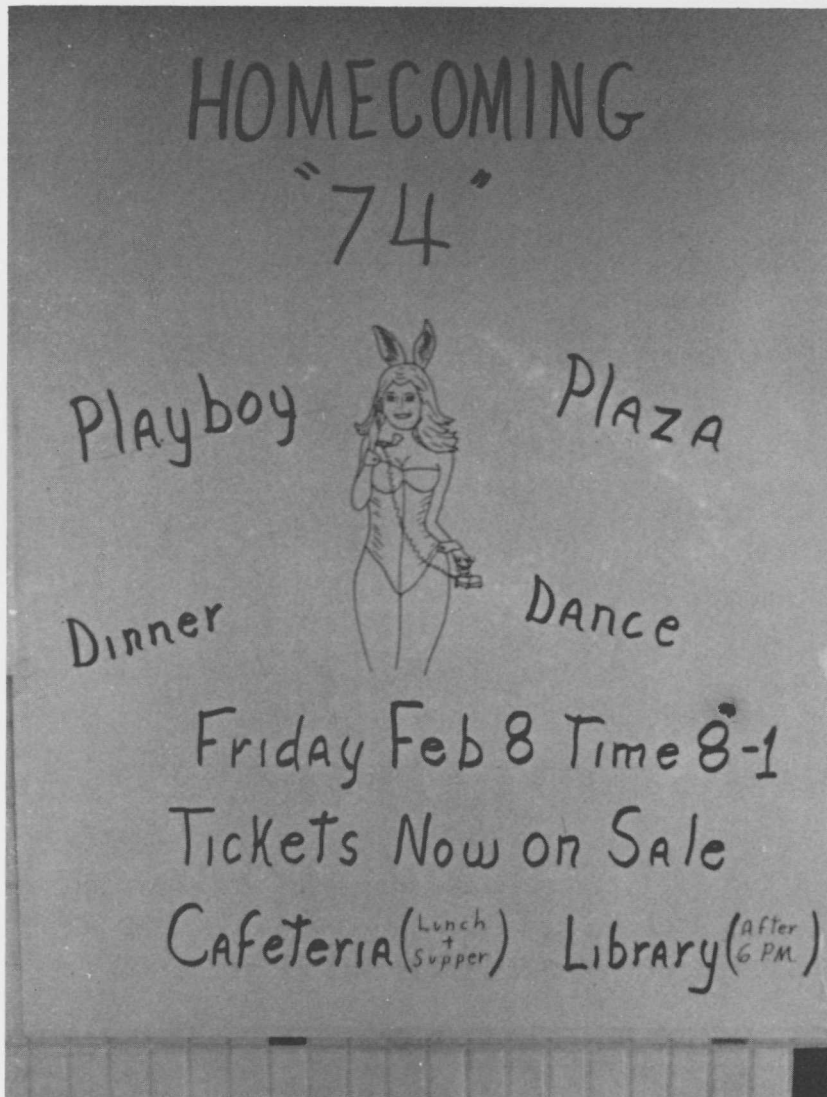 HOMECOMING
"74"
Playboy Plaza
Dinner Dance
Friday Feb 8 Time 8-1
Tickets Now on Sale
Cafeteria (Lunch + Supper) Library (After 6 PM)